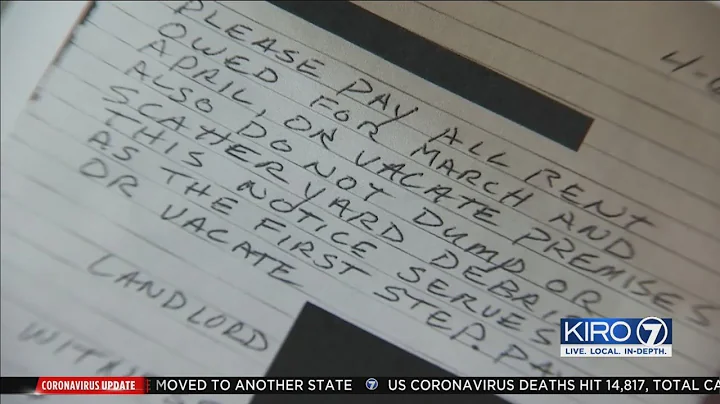 4-
PLEASE PAY ALL RENT
OWED FOR MARCH AND
APRIL, OR VACATE PREMISES
ALSO DO NOT DUMP OR
SCATTER YARD DEBRIS
THIS NOTICE SERVES
AS THE FIRST STEP. PA
OR VACATE
LANDLORD
KIRO 7
LIVE. LOCAL. IN-DEPTH.
CORONAVIRUS UPDATE MOVED TO ANOTHER STATE 7 US CORONAVIRUS DEATHS HIT 14,817, TOTAL CA